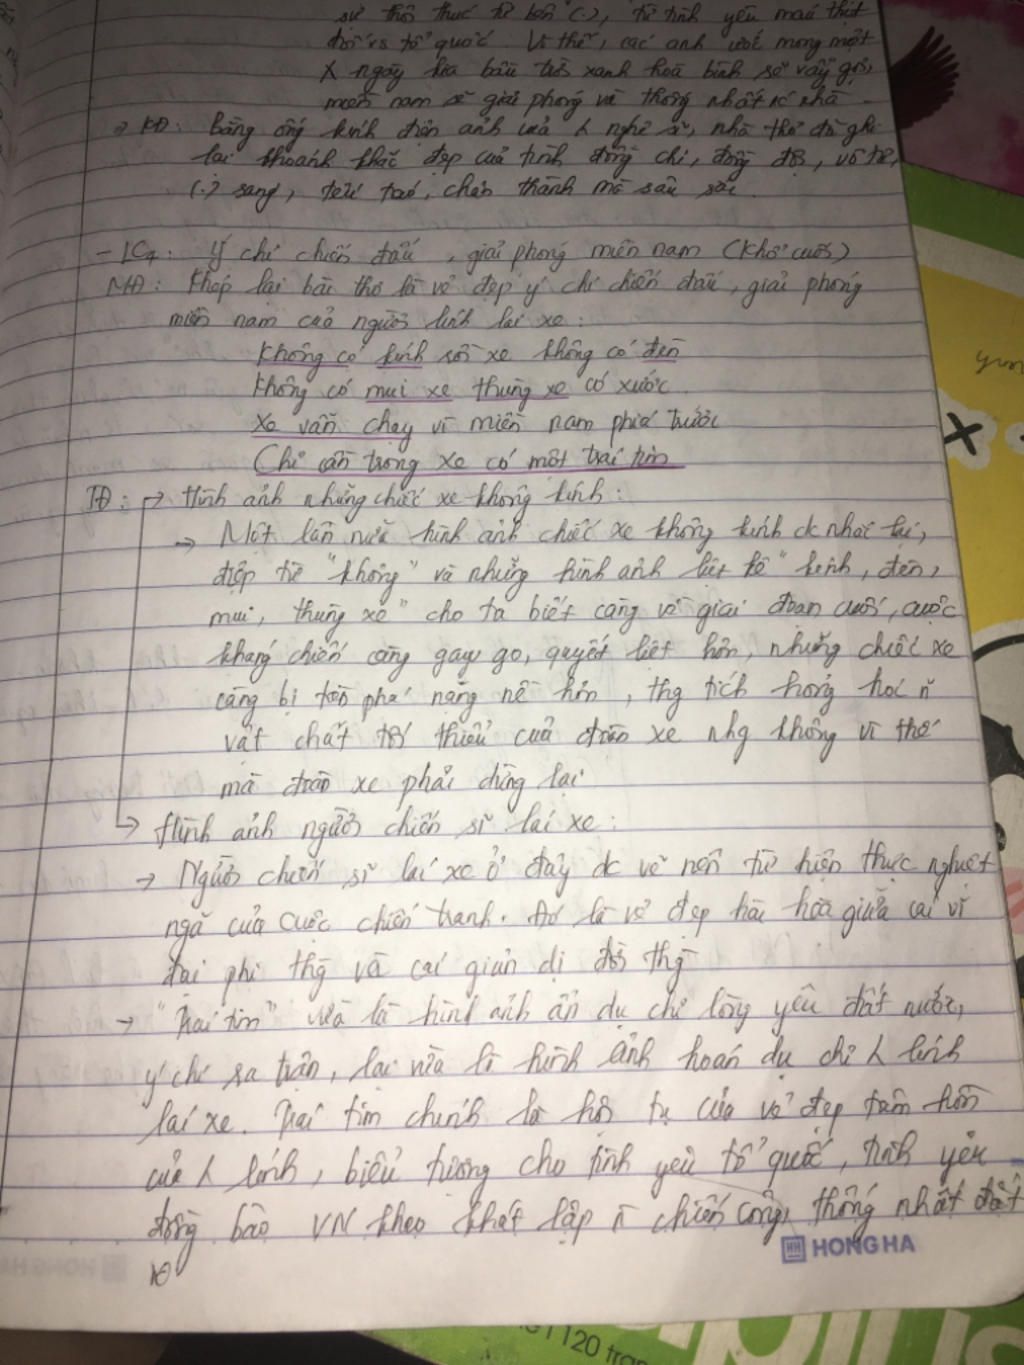 sự thôi thúc từ bên (.), từ tình yêu máu thịt
đối vs tổ quốc. Vì thế, các anh ước mong một
ngày kia bầu trời xanh hoà bình sẽ vẫy gọi,
miền nam sẽ giải phóng và thống nhất nc nhà
→ KĐ: Bằng ống kính điện ảnh của nghệ sĩ, nhà thơ đã ghi
lại khoảnh khắc đẹp của tình đồng chí, đồng đội, vô tư,
(.) sáng, tếu táo, chân thành mà sâu sắc.
- LC4: Ý chí chiến đấu, giải phóng miền nam (khổ cuối)
MĐ: Khép lại bài thơ là vẻ đẹp ý chí chiến đấu, giải phóng
miền nam của người lính lái xe:
Không có kính rồi xe không có đèn
Không có mui xe thùng xe có xước
Xe vẫn chạy vì miền nam phía trước
Chỉ cần trong xe có một trái tim
TĐ: → Hình ảnh những chiếc xe không kính:
→ Một lần nữa hình ảnh chiếc xe không kính dc nhắc lại,
điệp từ "không" và những hình ảnh liệt kê "kính, đèn,
mui, thùng xe" cho ta biết càng về giai đoạn cuối, cuộc
kháng chiến càng gay go, quyết liệt hơn, những chiếc xe
càng bị tàn phá nặng nề hơn, thg tích hỏng hóc
vật chất tối thiểu của đoàn xe nhg không vì thế
mà đoàn xe phải dừng lại
→ Hình ảnh người chiến sĩ lái xe:
→ Người chiến sĩ lái xe ở đây dc vẽ nên từ hiện thực nghiệt
ngã của cuộc chiến tranh. Đó là vẻ đẹp hài hoà giữa cái vĩ
đại phi thg và cái giản dị đời thg
→ "Trái tim" vừa là hình ảnh ẩn dụ chỉ lòng yêu đất nước,
ý chí sa trận, lại vừa là hình ảnh hoán dụ chỉ lính
lái xe. Trái tim chính là hội tụ của vẻ đẹp tâm hồn
của lính, biểu tượng cho tình yêu tổ quốc, tình yêu
đồng bào VN khao khát lập chiến công, thống nhất đất
HONG HA
120 tran